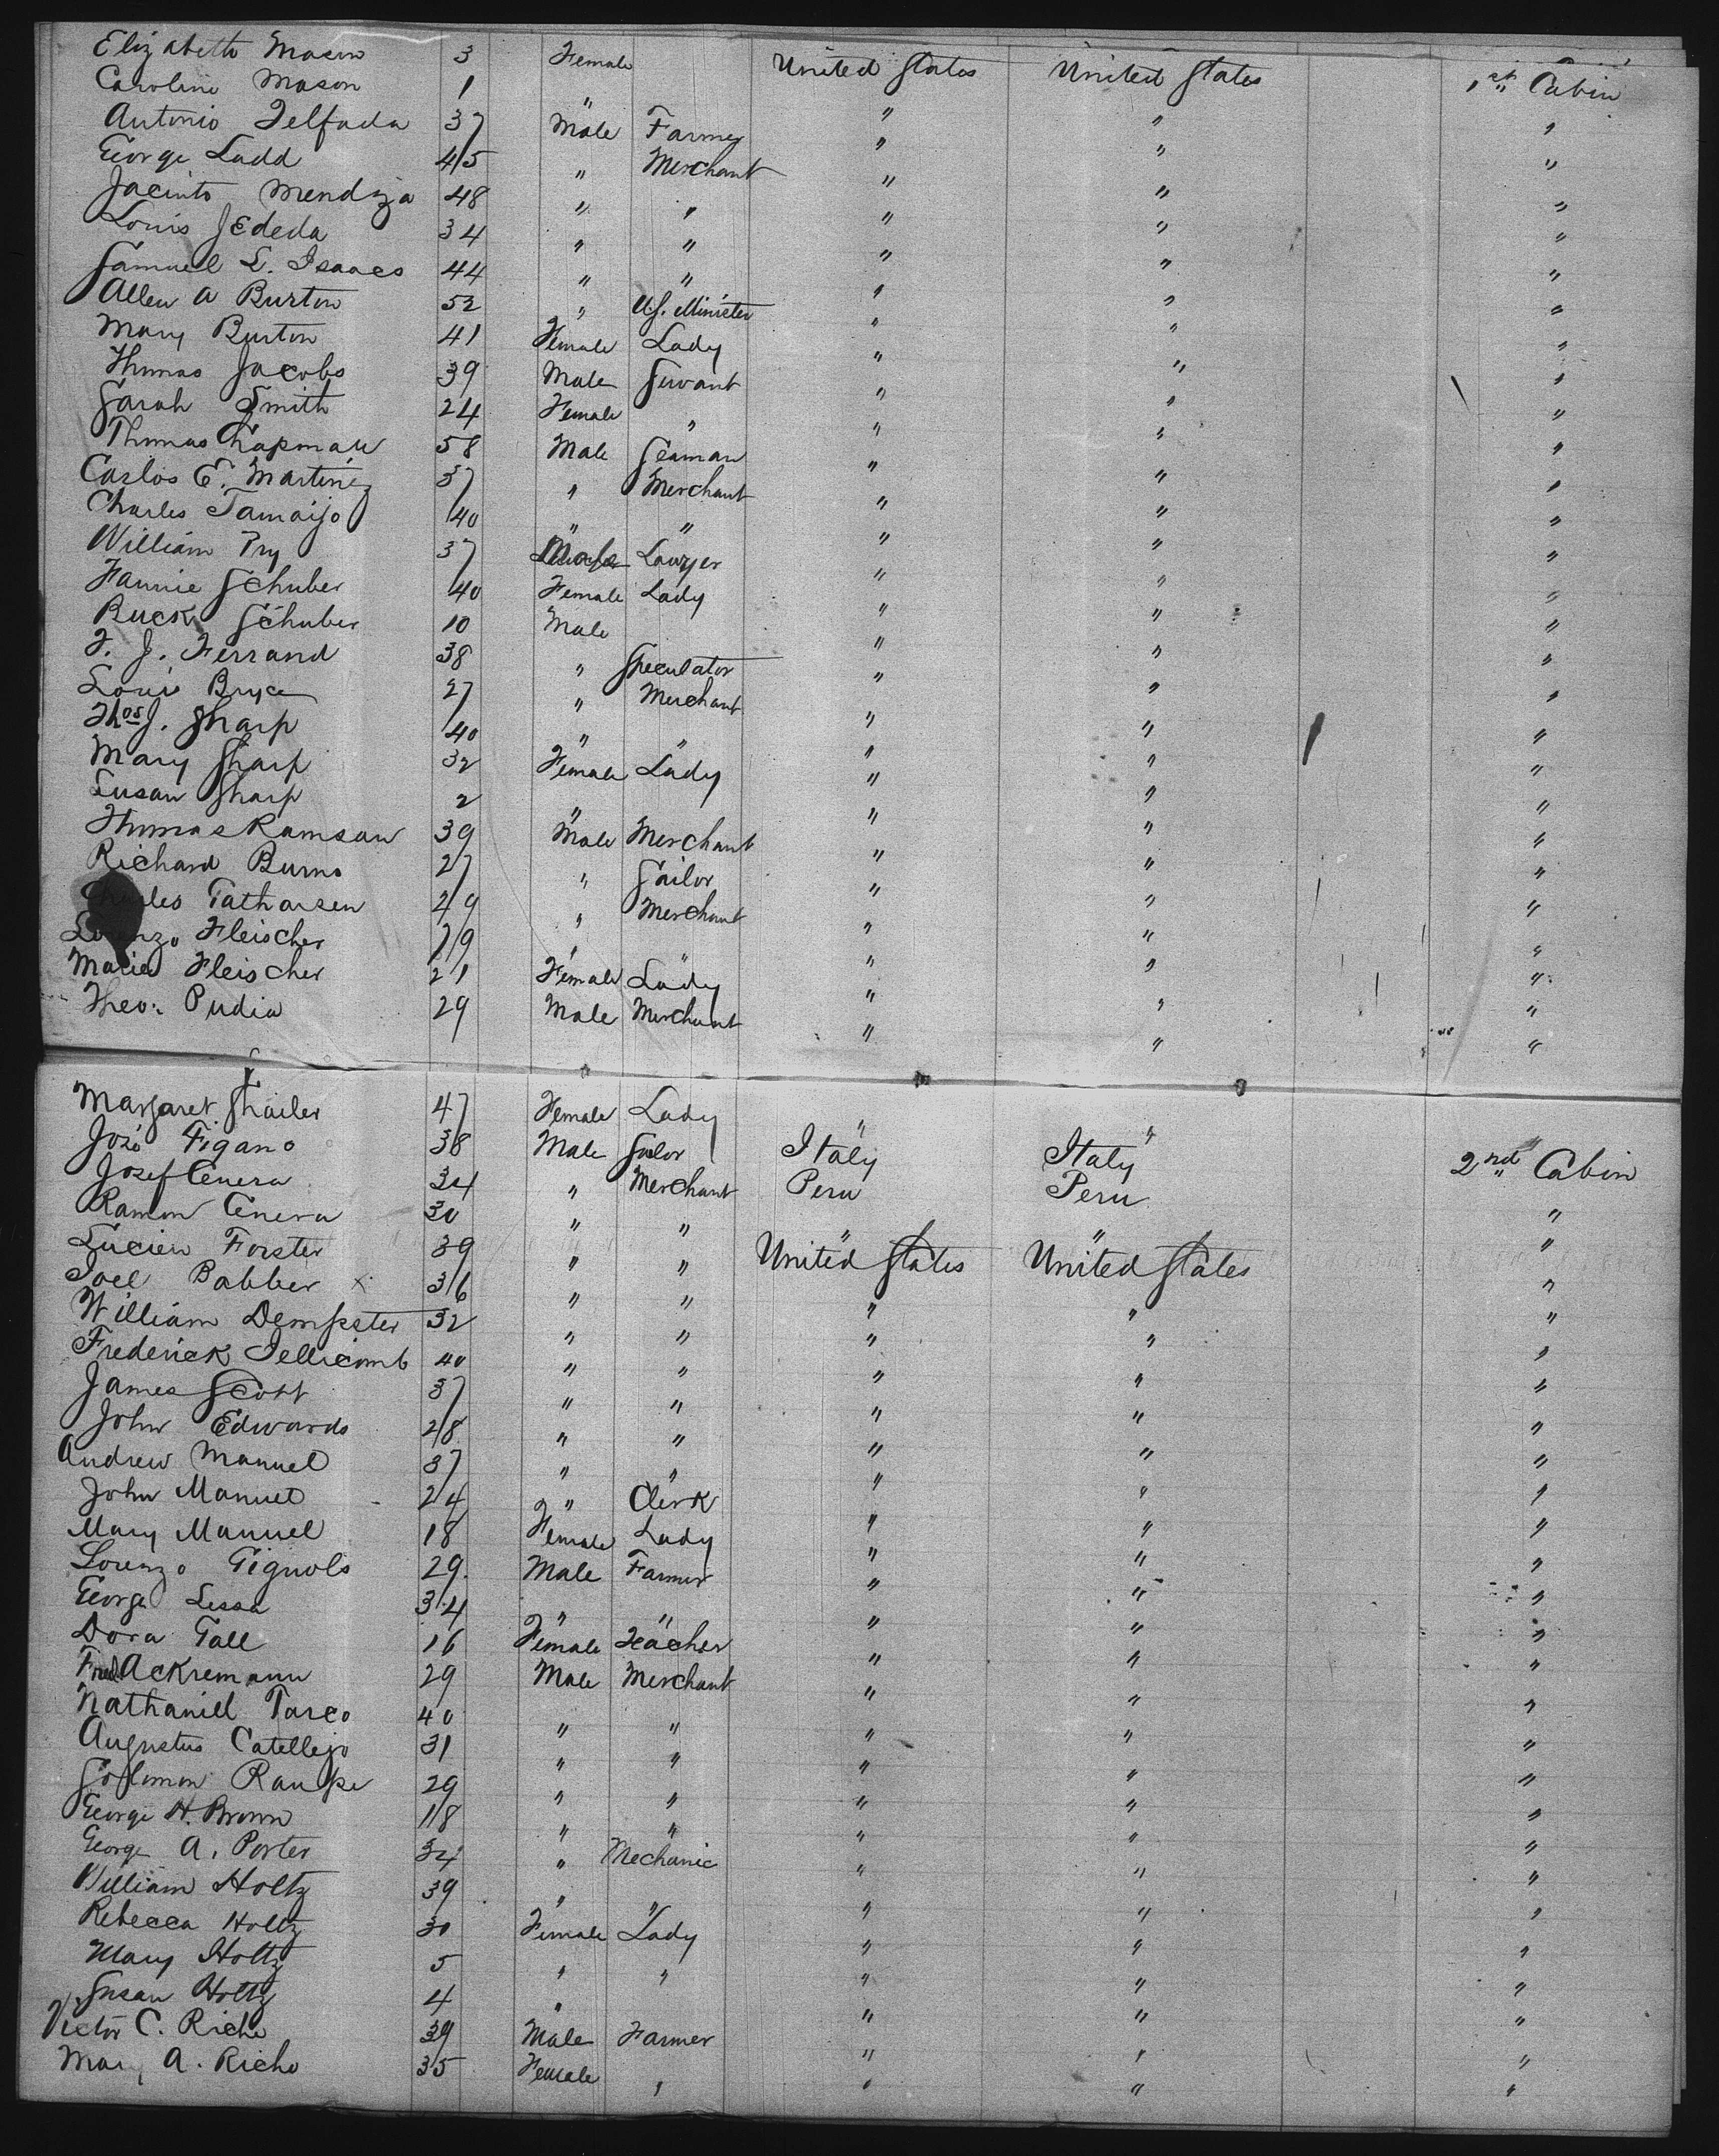 Elizabeth Mason 3 Female United States United States 1st Cabin
Caroline Mason 1 " " " "
Antonio Telfada 37 Male Farmer " " "
George Ladd 45 " Merchant " " "
Jacinto Mendiza 48 " " " " "
Louis 34 " " " " "
Samuel L. Isaacs 44 " " " " "
Allen A Burton 52 " U.S. Minister " " "
Mary Burton 41 Female Lady " " "
Thomas Jacobs 39 Male Servant " " "
Sarah Smith 24 Female " " " "
Thomas Chapman 58 Male Seaman " " "
Carlos E. Martinez 37 " Merchant " " "
Charles Tamaijo 40 " " " " "
William Pry 37 Male Lawyer " " "
Fannie Schuber 40 Female Lady " " "
Buck Schuber 10 Male " " "
F. J. Ferrand 38 " Speculator " " "
Louis Bryce 27 " Merchant " " "
Thos J. Sharp 40 " " " " "
Mary Sharp 32 Female Lady " " "
Susan Sharp 2 " " " "
Thomas Ramsaw 39 Male Merchant " " "
Richard Burns 27 " Sailor " " "
Charles Tatharsen 29 " Merchant " " "
Lorenzo Fleischer 29 " " " " "
Maria Fleischer 21 Female Lady " " "
Theo. Pudia 29 Male Merchant " " "
Margaret Shailer 47 Female Lady " "
José Figano 38 Male Italy Italy 2nd Cabin
Josef Cenera 34 " Merchant Peru Peru "
Ramon Cenera 30 " " " " "
Lucien Forster 39 " " United States United States "
Joel Babber x 36 " " " " "
William Dempster 32 " " " " "
Frederick Jellicomb 40 " " " " "
James Scott 37 " " " " "
John Edwards 28 " " " " "
Andrew Manuel 37 " " " " "
John Manuel 24 " Clerk " " "
Mary Manuel 18 Female Lady " " "
Lorenzo Gignols 29 Male Farmer " " "
George Lessa 34 " " " " "
Dora Gall 16 Female Teacher " " "
Fred Ackremann 29 Male Merchant " " "
Nathaniel Tarco 40 " " " " "
Augustus Catellejo 31 " " " " "
Solomon Raupe 29 " " " " "
George H. Brown 18 " " " " "
George A. Porter 34 " Mechanic " " "
William Holtz 39 " " " " "
Rebecca Holtz 30 Female Lady " " "
Mary Holtz 5 " " " " "
Susan Holtz 4 " " " "
Victor C. Riche 39 Male Farmer " " "
Mary A. Riche 35 Female " " " "